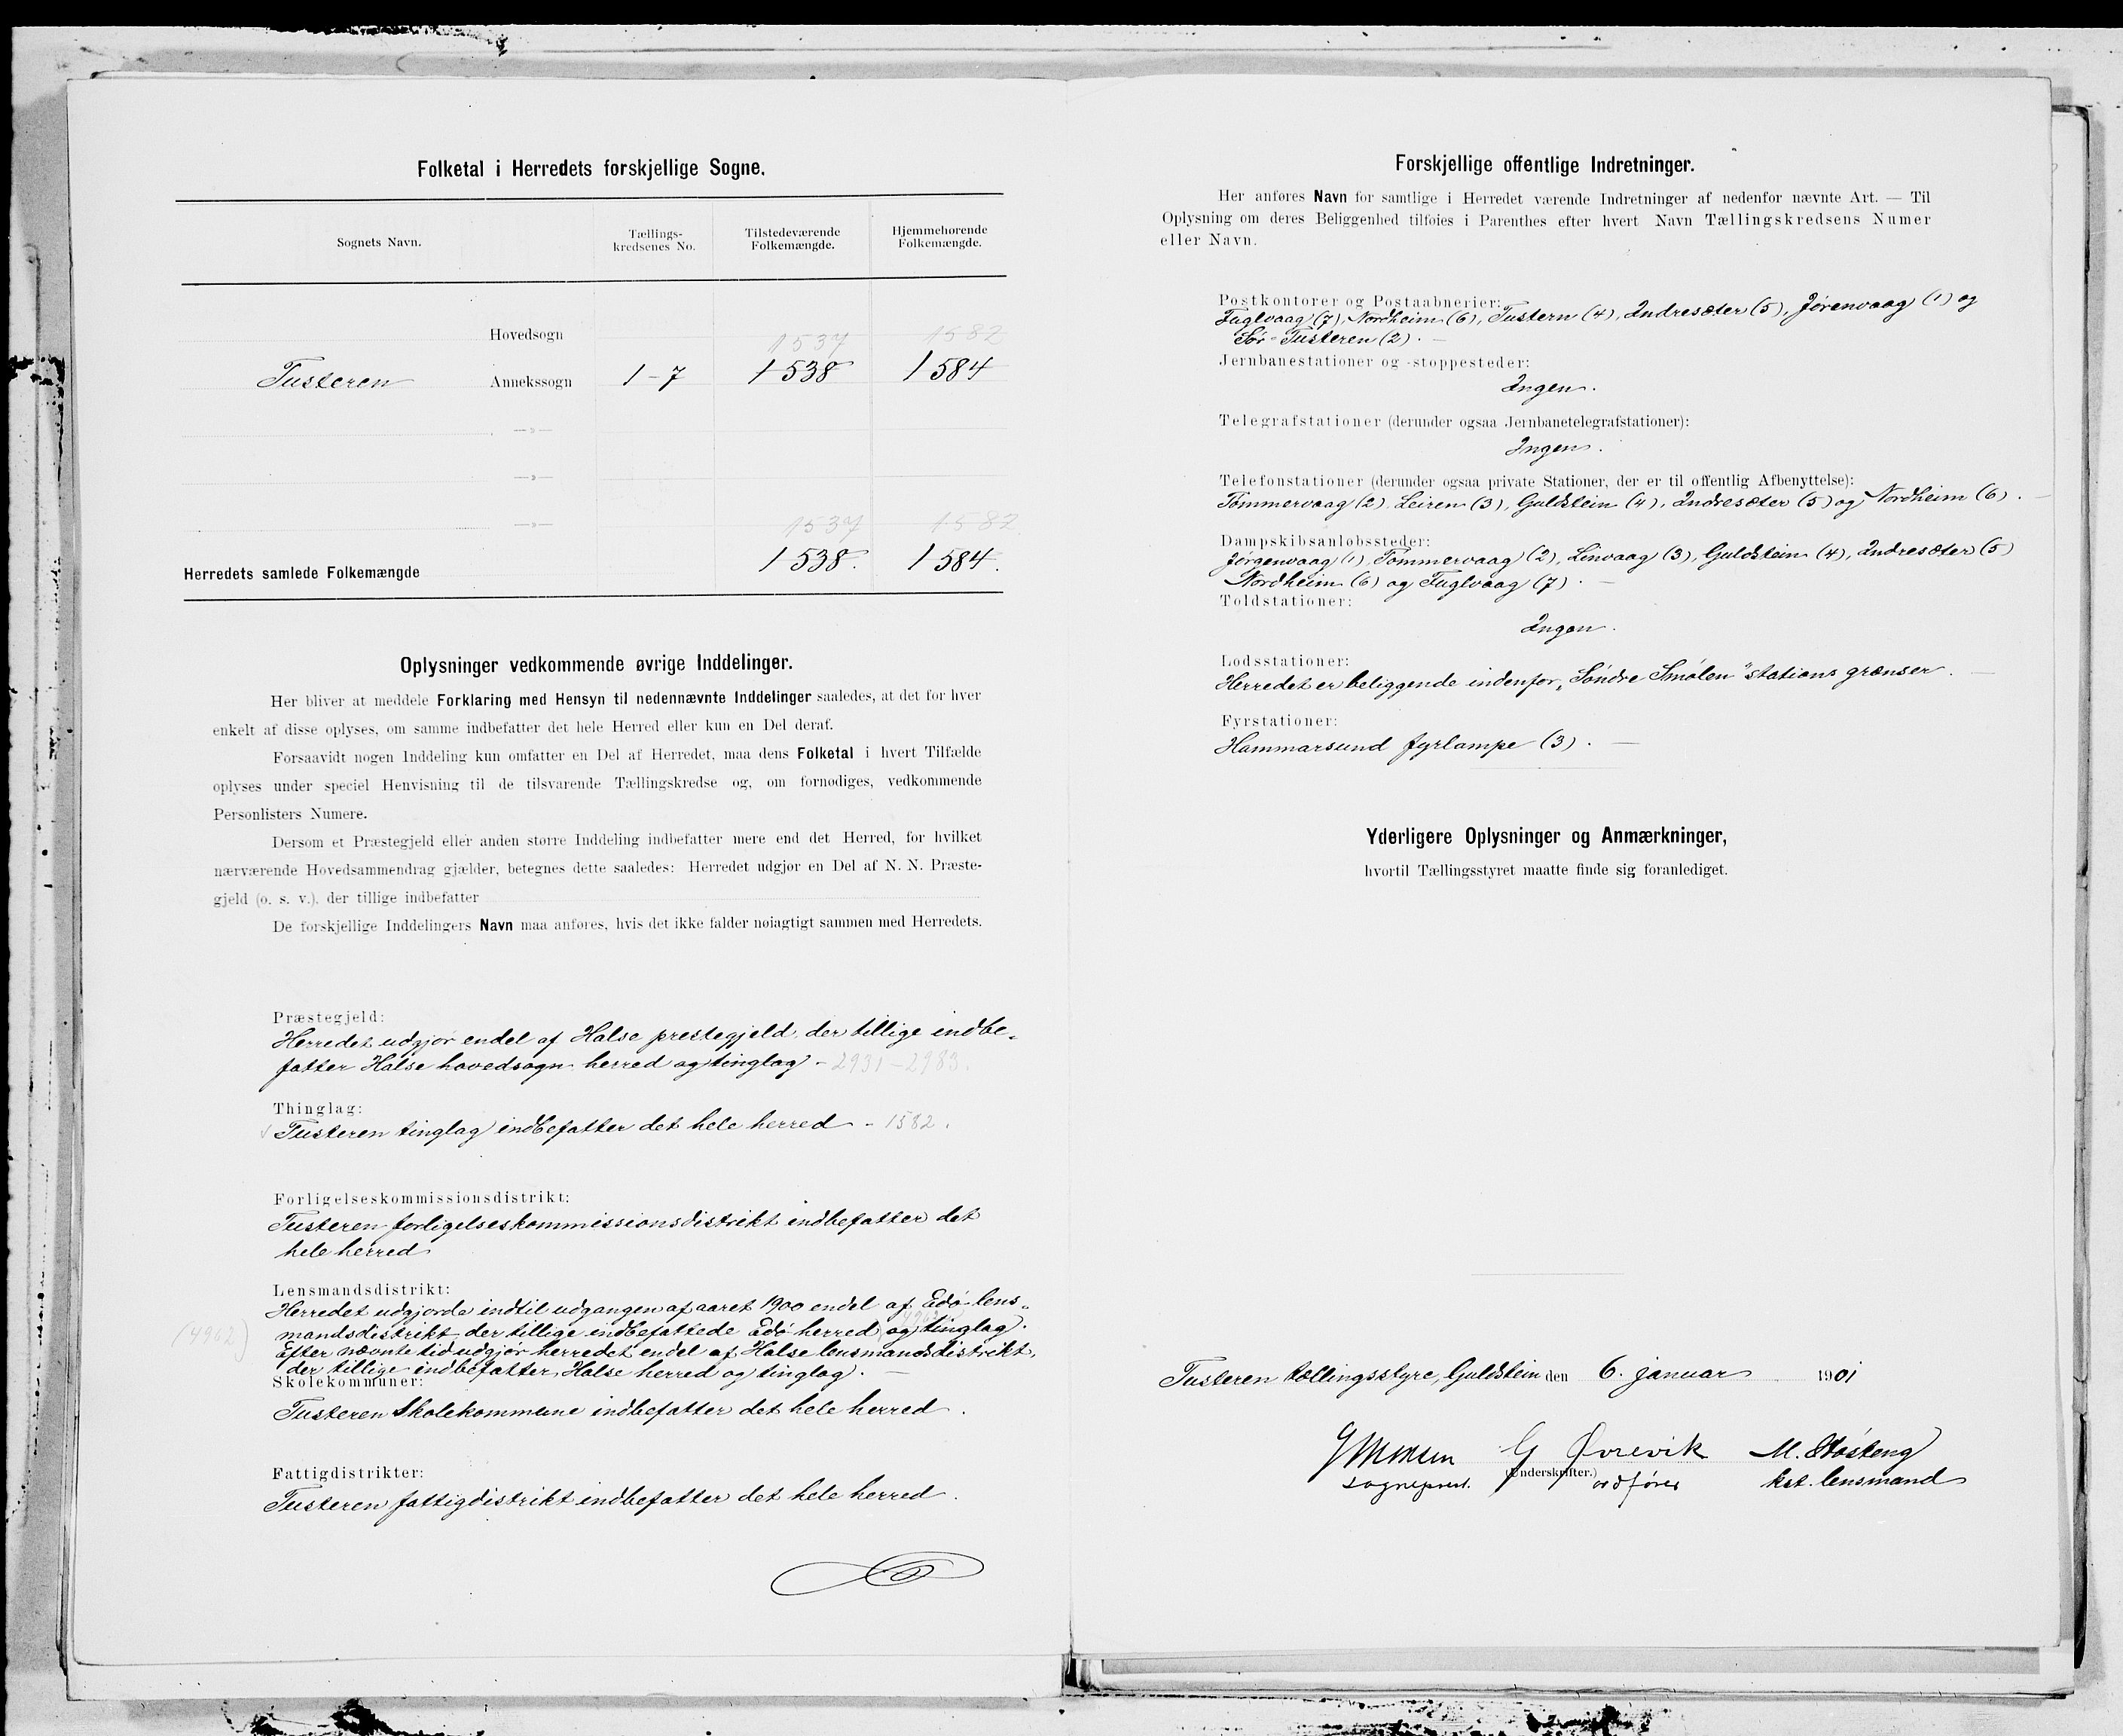 Folketal i Herredets forskjellige Sogne.
Sognets Navn.
Tællings-
kredsenes No.
Tilstedeværende
Folkemængde.
Hjemmehørende
Folkemængde.
Hovedsogn
1537 1582
Tusteren Annekssogn 1-7 1538 1584
—»—
—»—
—»—
1537 1582
Herredets samlede Folkemængde 1538. 1584.
Oplysninger vedkommende øvrige Inddelinger.
Her bliver at meddele Forklaring med Hensyn til nedennævnte Inddelinger saaledes, at det for hver
enkelt af disse oplyses, om samme indbefatter det hele Herred eller kun en Del deraf.
Forsaavidt nogen Inddeling kun omfatter en Del af Herredet, maa dens Folketal i hvert Tilfælde
oplyses under speciel Henvisning til de tilsvarende Tællingskredse og, om fornødiges, vedkommende
Personlisters Numere.
Dersom et Præstegjeld eller anden større Inddeling indbefatter mere end det Herred, for hvilket
nærværende Hovedsammendrag gjælder, betegnes dette saaledes: Herredet udgjør en Del af N. N. Præste-
gjeld (o. s. v.), der tillige indbefatter
De forskjellige Inddelingers Navn maa anføres, hvis det ikke falder nøiagtigt sammen med Herredets.
Præstegjeld:
Herredet udgjør endel af Halse prestegjeld, der tillige indbe-
fatter Halse hovedsogn herred og tinglag - 2931-2983.
Thinglag:
Tusteren tinglag indbefatter det hele herred - 1582.
Forligelseskommissionsdistrikt:
Tusteren forligelseskommissionsdistrikt indbefatter det
hele herred
Lensmandsdistrikt:
Herredet udgjorde indtil udgangen af aaret 1900 endel af Edø lens-
(4962) mandsdistrikt, der tillige indbefattede Edø herred og tinglag.
Efter nævnte tid udgjør herredet endel af Halse lensmandsdistrikt,
der tillige indbefatter Halse herred og tinglag. —
Skolekommuner:
Tusteren Skolekommune indbefatter det hele herred.
Fattigdistrikter:
Tusteren fattigdistrikt indbefatter det hele herred.
Forskjellige offentlige Indretninger.
Her anføres Navn for samtlige i Herredet værende Indretninger af nedenfor nævnte Art. — Til
Oplysning om deres Beliggenhed tilføies i Parenthes efter hvert Navn Tællingskredsens Numer
eller Navn.
Postkontorer og Postaabnerier:
Fuglvaag (7), Nordheim (6), Tustern (4), Indresæter (5), Jørenvaag (1) og
Sør-Tusteren (2). —
Jernbanestationer og -stoppesteder:
Ingen.
Telegrafstationer (derunder ogsaa Jernbanetelegrafstationer):
Ingen.
Telefonstationer (derunder ogsaa private Stationer, der er til offentlig Afbenyttelse):
Tømmervaag (2), Leiren (3), Guldstein (4), Indresæter (5) og Nordheim (6). —
Dampskibsanløbssteder:
Jørgenvaag (1), Tømmervaag (2), Linvaag (3), Guldstein (4), Indresæter (5)
Nordheim (6) og Fuglvaag (7). —
Toldstationer:
Ingen.
Lodsstationer:
Herredet er beliggende indenfor „Søndre Smølen" stations grænser. —
Fyrstationer:
Hammarsund fyrlampe (3). —
Yderligere Oplysninger og Anmærkninger,
hvortil Tællingsstyret maatte finde sig foranlediget.
Tusteren tællingsstyre, Guldstein den 6. januar 1901
G Ørevik M. Støsteng
(Underskrifter.)
sogneprest. ordfører kst. lensmand